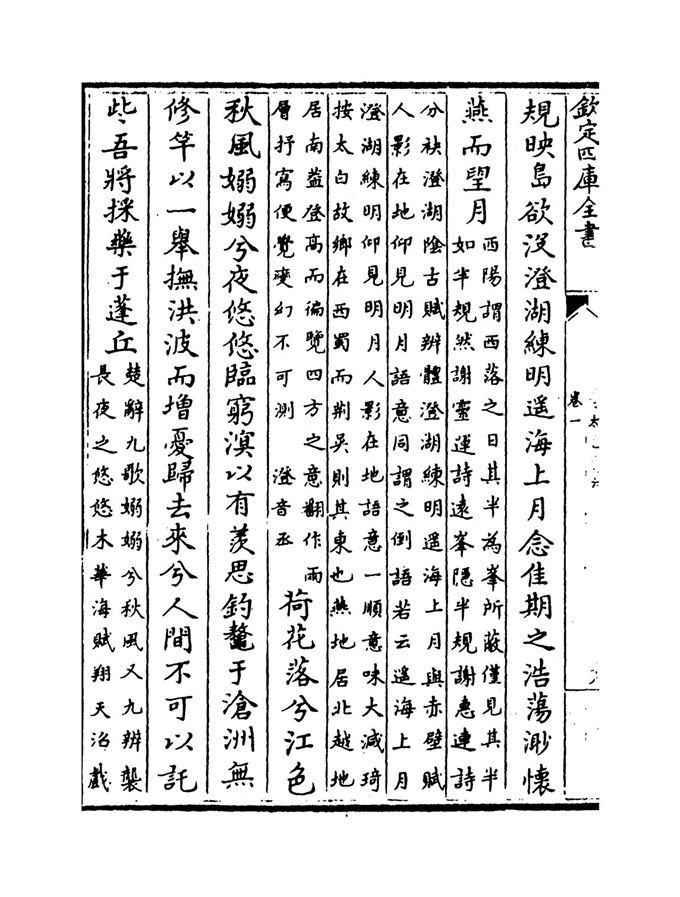 欽定四庫全書
卷一
規映島欲没澄湖練明遥海上月念佳期之浩蕩渺懷
燕而望月
西陽謂西落之日其半為峯所蔽僅見其半
如半規然謝靈運詩遠峯隱半規謝惠連詩
分袂澄湖陰古賦辨體澄湖練明遥海上月與赤壁賦
人影在地仰見明月語意同謂之倒語若云遥海上月
澄湖練明仰見明月人影在地語意一順意味大減琦
按太白故鄉在西蜀而荆吴則其東也燕地居北越地
居南葢登高而徧覽四方之意翻作兩
層抒寫便覺變幻不可測 澄音丞
荷花落兮江色
秋風嫋嫋兮夜悠悠臨窮溟以有羨思釣鼇于滄洲無
修竿以一舉撫洪波而增憂歸去來兮人間不可以託
些吾將採藥于蓬丘
楚辭九歌嫋嫋兮秋風又九辨襲
長夜之悠悠木華海賦翔天沼戲